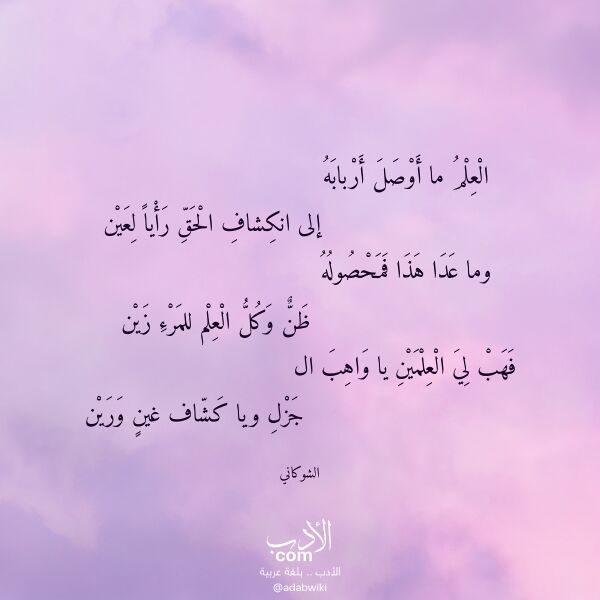 الْعِلْمُ ما أَوْصَلَ أَرْبابَهُ
إلى انكِشافِ الْحَقِّ رَأْياً لِعَيْن
وما عَدَا هَذَا فَمَحْصُولُهُ
ظَنٌّ وَكُلُّ الْعِلْم للمَرْءِ زَيْن
فَهَبْ لِيَ الْعِلْمَيْنِ يا وَاهِبَ ال
جَزْلِ ويا كَشّاف غينٍ وَرَيْن
الشوكاني
الأدب
com
الأدب .. بلغة عربية
@adabwiki